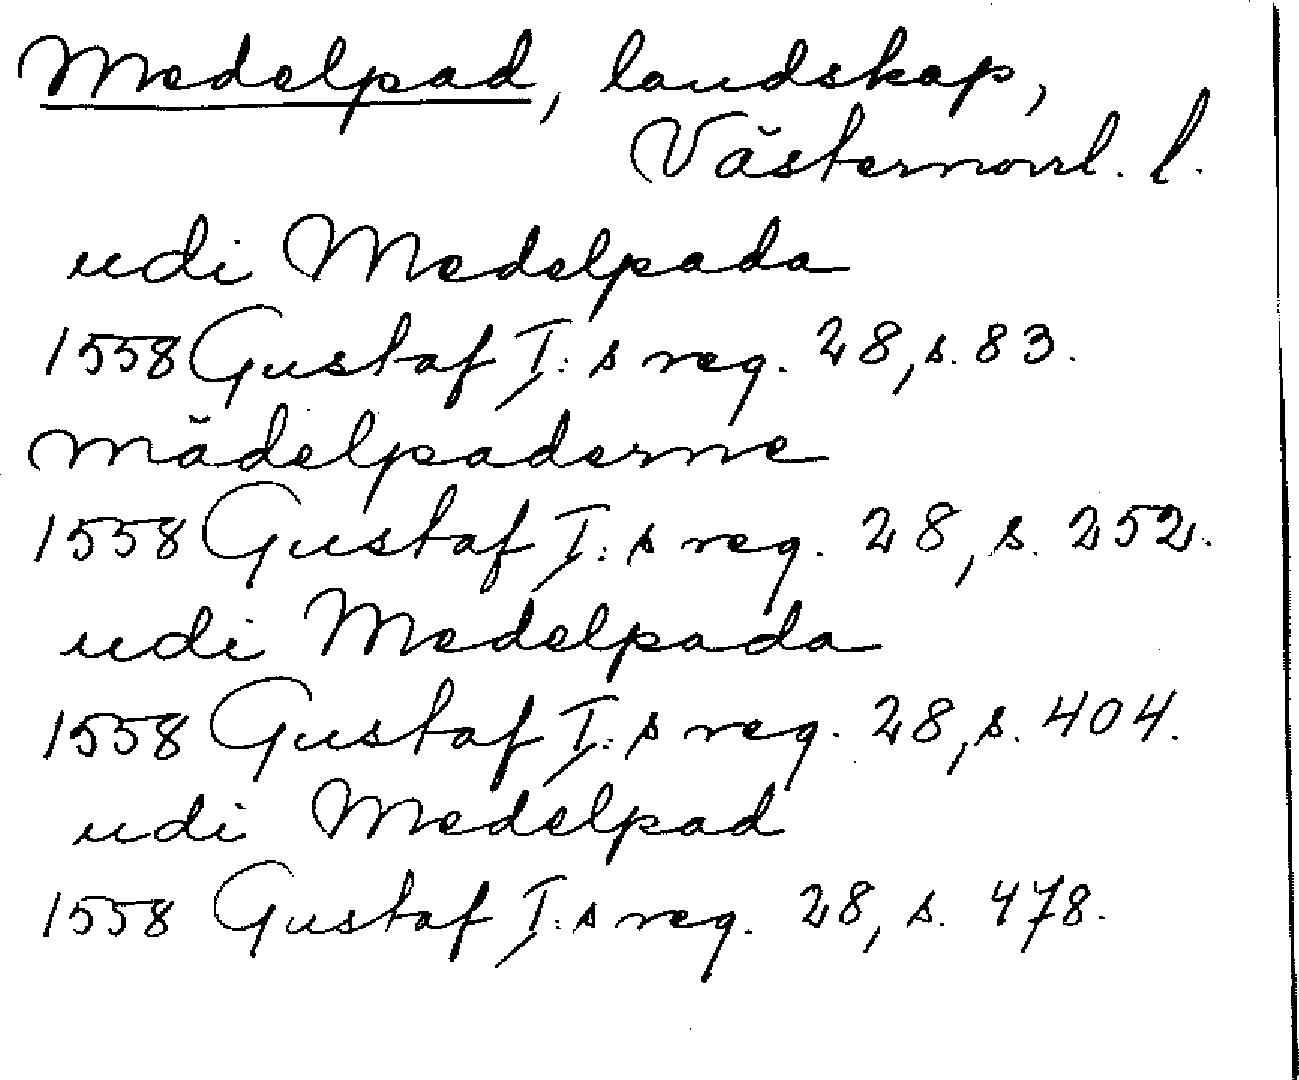 Medelpad, landskap,
Västernorrl. l.
udi Medelpada
1558 Gustaf I:s reg. 28, s. 83.
Mädelpaderne
1558 Gustaf I:s reg. 28, s. 252.
udi Medelpada
1558 Gustaf I:s reg. 28, s. 404.
udi Medelpad
1558 Gustaf I:s reg. 28, s. 478.